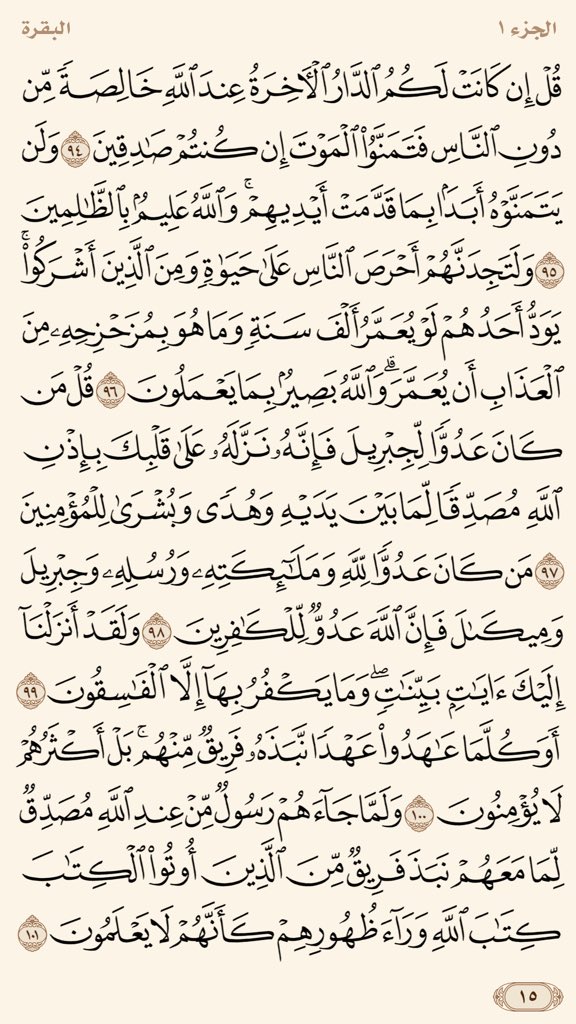 الجزء ١
البقرة
قُلْ إِن كَانَتْ لَكُمُ ٱلدَّارُ ٱلْـَٔاخِرَةُ عِندَ ٱللَّهِ خَالِصَةً مِّن
دُونِ ٱلنَّاسِ فَتَمَنَّوُا۟ ٱلْمَوْتَ إِن كُنتُمْ صَـٰدِقِينَ ٩٤ وَلَن
يَتَمَنَّوْهُ أَبَدًۢا بِمَا قَدَّمَتْ أَيْدِيهِمْ ۚ وَٱللَّهُ عَلِيمٌۢ بِٱلظَّـٰلِمِينَ
٩٥ وَلَتَجِدَنَّهُمْ أَحْرَصَ ٱلنَّاسِ عَلَىٰ حَيَوٰةٍ وَمِنَ ٱلَّذِينَ أَشْرَكُوا۟ ۚ
يَوَدُّ أَحَدُهُمْ لَوْ يُعَمَّرُ أَلْفَ سَنَةٍ وَمَا هُوَ بِمُزَحْزِحِهِۦ مِنَ
ٱلْعَذَابِ أَن يُعَمَّرَ ۗ وَٱللَّهُ بَصِيرٌۢ بِمَا يَعْمَلُونَ ٩٦ قُلْ مَن
كَانَ عَدُوًّا لِّجِبْرِيلَ فَإِنَّهُۥ نَزَّلَهُۥ عَلَىٰ قَلْبِكَ بِإِذْنِ
ٱللَّهِ مُصَدِّقًا لِّمَا بَيْنَ يَدَيْهِ وَهُدًى وَبُشْرَىٰ لِلْمُؤْمِنِينَ
٩٧ مَن كَانَ عَدُوًّا لِّلَّهِ وَمَلَـٰٓئِكَتِهِۦ وَرُسُلِهِۦ وَجِبْرِيلَ
وَمِيكَىٰلَ فَإِنَّ ٱللَّهَ عَدُوٌّ لِّلْكَـٰفِرِينَ ٩٨ وَلَقَدْ أَنزَلْنَآ
إِلَيْكَ ءَايَـٰتٍۭ بَيِّنَـٰتٍ ۖ وَمَا يَكْفُرُ بِهَآ إِلَّا ٱلْفَـٰسِقُونَ ٩٩
أَوَكُلَّمَا عَـٰهَدُوا۟ عَهْدًا نَّبَذَهُۥ فَرِيقٌ مِّنْهُم ۚ بَلْ أَكْثَرُهُمْ
لَا يُؤْمِنُونَ ١٠٠ وَلَمَّا جَآءَهُمْ رَسُولٌ مِّنْ عِندِ ٱللَّهِ مُصَدِّقٌ
لِّمَا مَعَهُمْ نَبَذَ فَرِيقٌ مِّنَ ٱلَّذِينَ أُوتُوا۟ ٱلْكِتَـٰبَ
كِتَـٰبَ ٱللَّهِ وَرَآءَ ظُهُورِهِمْ كَأَنَّهُمْ لَا يَعْلَمُونَ ١٠١
١٥